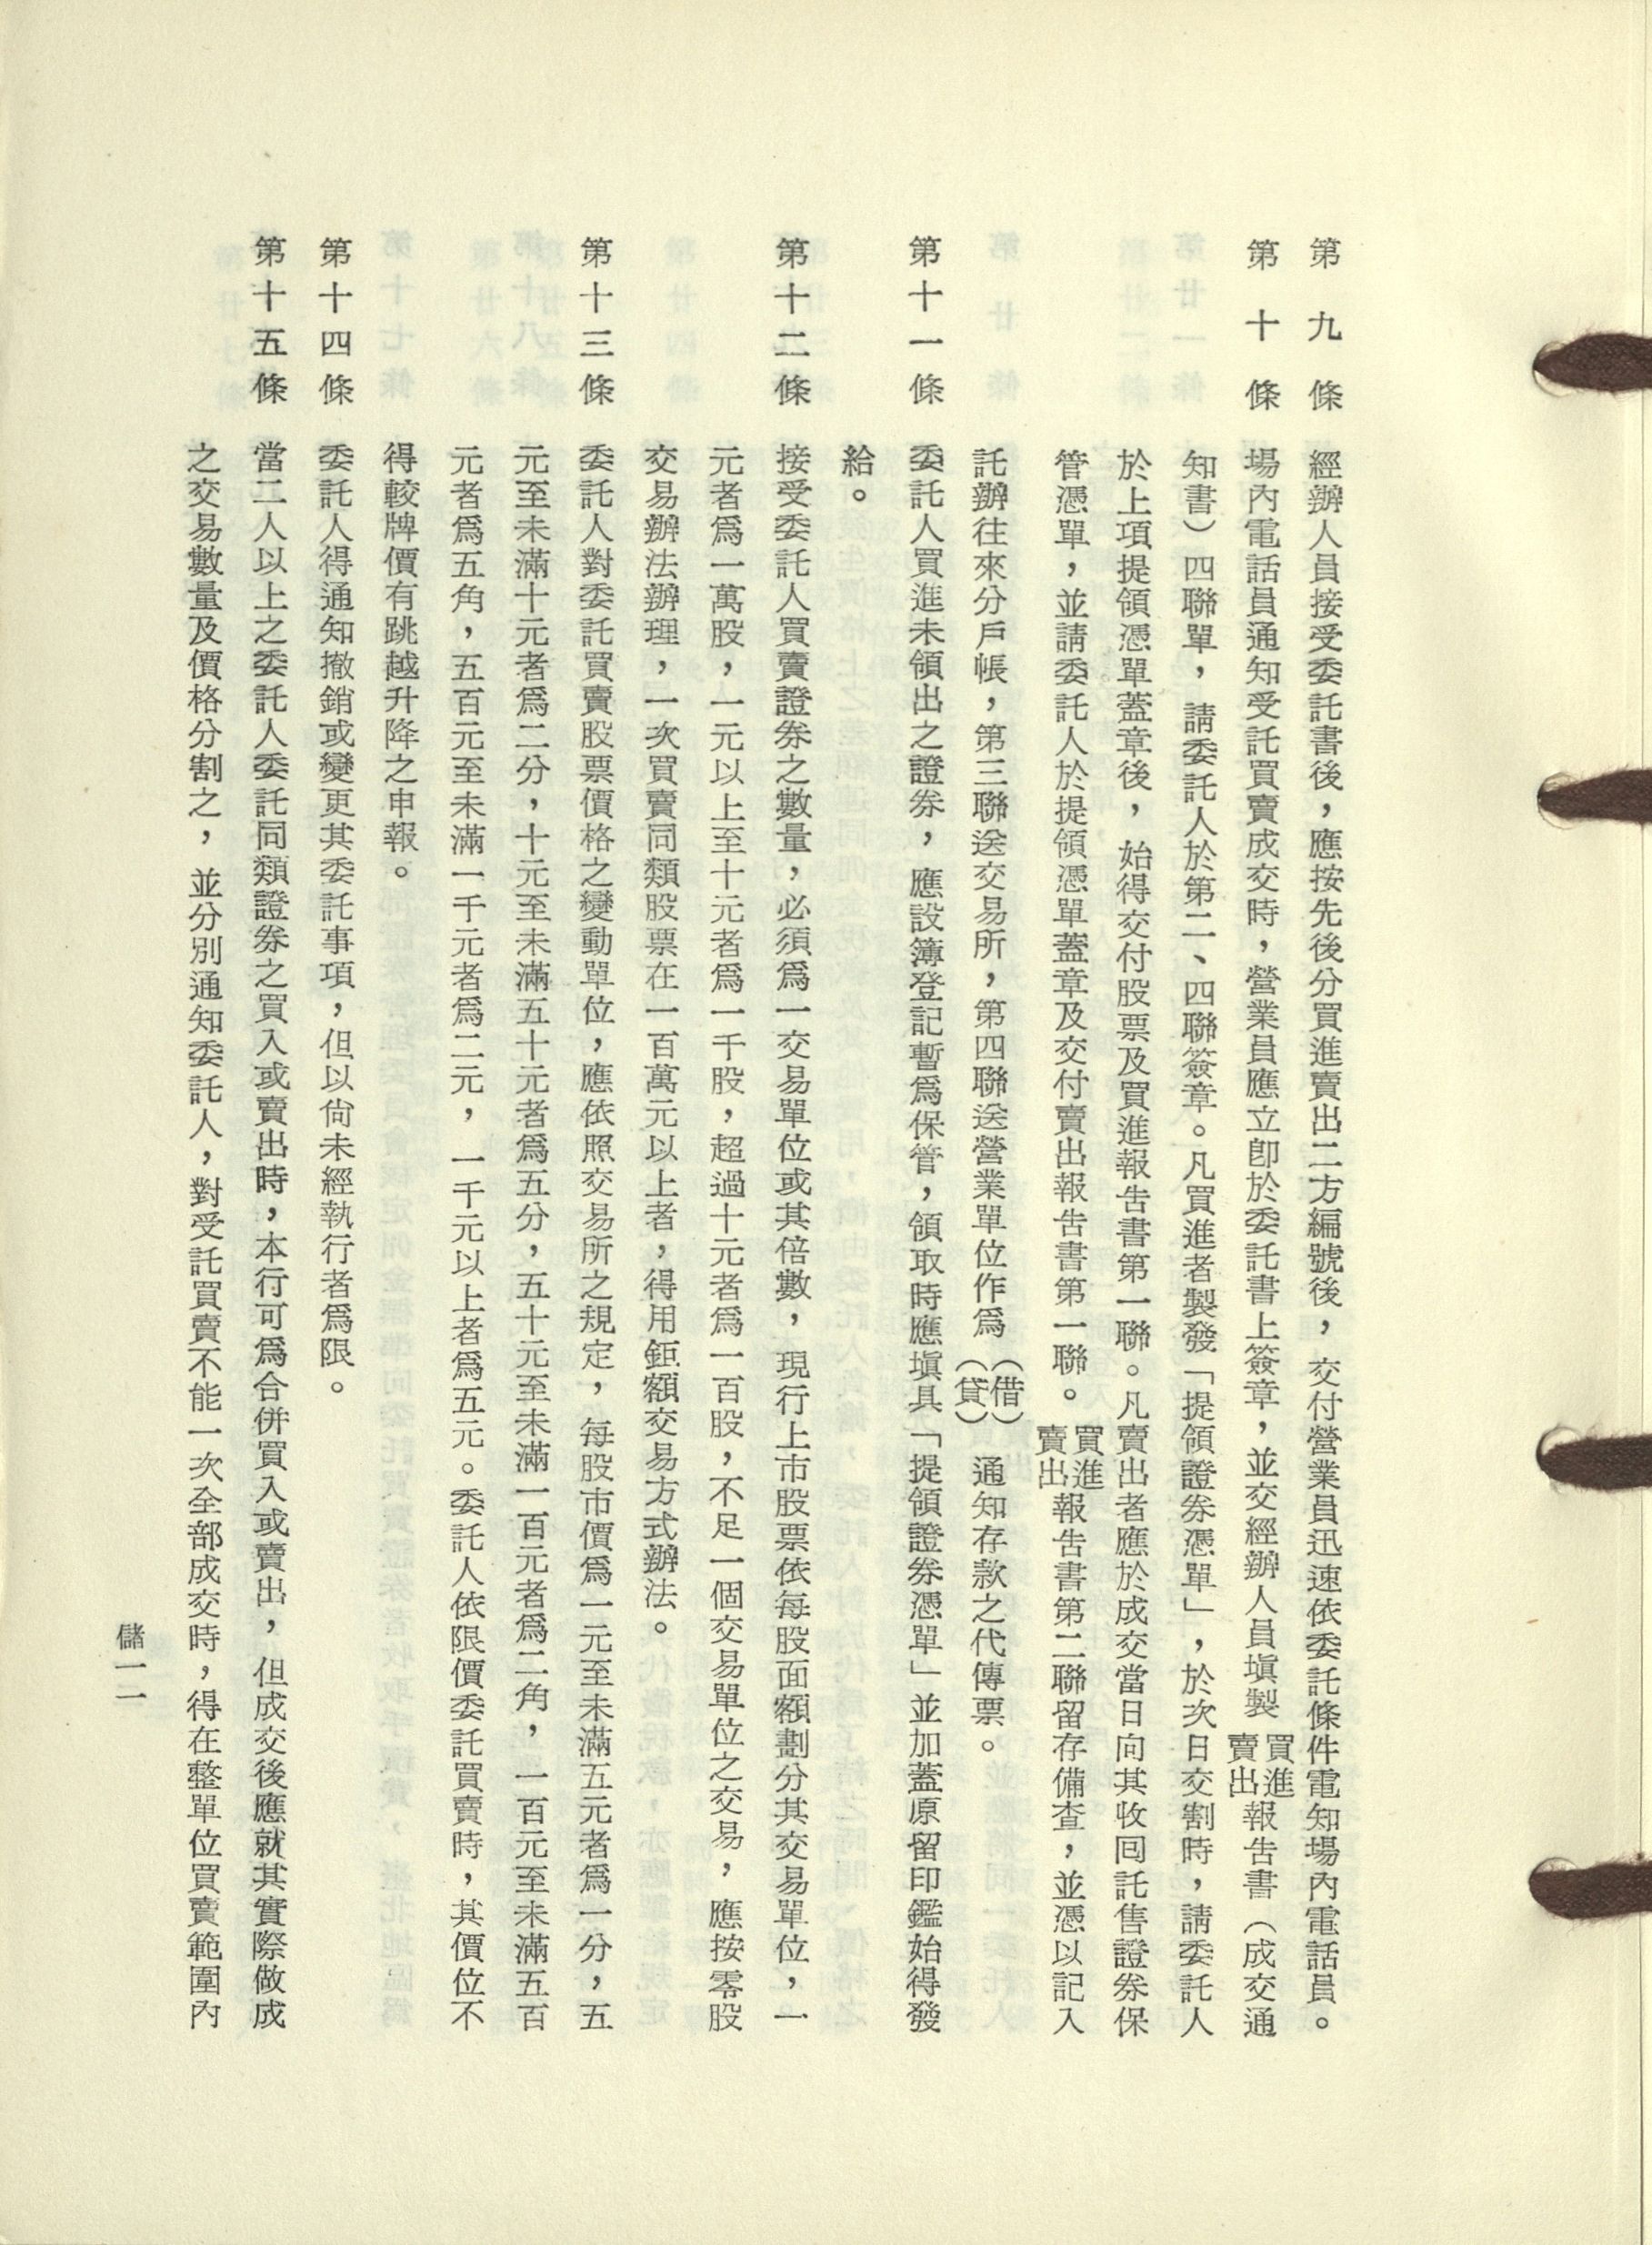 第九條　經辦人員接受委託書後，應按先後分買進賣出二方編號後，交付營業員迅速依委託條件電知場內電話員。
第十條　場內電話員通知受託買賣成交時，營業員應立卽於委託書上簽章，並交經辦人員塡製買進賣出報告書（成交通
知書）四聯單，請委託人於第二、四聯簽章。凡買進者製發「提領證券憑單」，於次日交割時，請委託人
於上項提領憑單蓋章後，始得交付股票及買進報告書第一聯。凡賣出者應於成交當日向其收回託售證券保
管憑單，並請委託人於提領憑單蓋章及交付賣出報告書第一聯。買進賣出報告書第二聯留存備查，並憑以記入
託辦往來分戶帳，第三聯送交易所，第四聯送營業單位作爲（借）（貸）通知存款之代傳票。
第十一條　委託人買進未領出之證券，應設簿登記暫爲保管，領取時應塡具「提領證券憑單」並加蓋原留印鑑始得發
給。
第十二條　接受委託人買賣證券之數量，必須爲一交易單位或其倍數，現行上市股票依每股面額劃分其交易單位，一
元者爲一萬股，一元以上至十元者爲一千股，超過十元者爲一百股，不足一個交易單位之交易，應按零股
交易辦法辦理，一次買賣同類股票在一百萬元以上者，得用鉅額交易方式辦法。
第十三條　委託人對委託買賣股票價格之變動單位，應依照交易所之規定，每股市價爲一元至未滿五元者爲一分，五
元至未滿十元者爲二分，十元至未滿五十元者爲五分，五十元至未滿一百元者爲二角，一百元至未滿五百
元者爲五角，五百元至未滿一千元者爲二元，一千元以上者爲五元。委託人依限價委託買賣時，其價位不
得較牌價有跳越升降之申報。
第十四條　委託人得通知撤銷或變更其委託事項，但以尙未經執行者爲限。
第十五條　當二人以上之委託人委託同類證券之買入或賣出時，本行可爲合併買入或賣出，但成交後應就其實際做成
之交易數量及價格分割之，並分別通知委託人，對受託買賣不能一次全部成交時，得在整單位買賣範圍內
儲一二